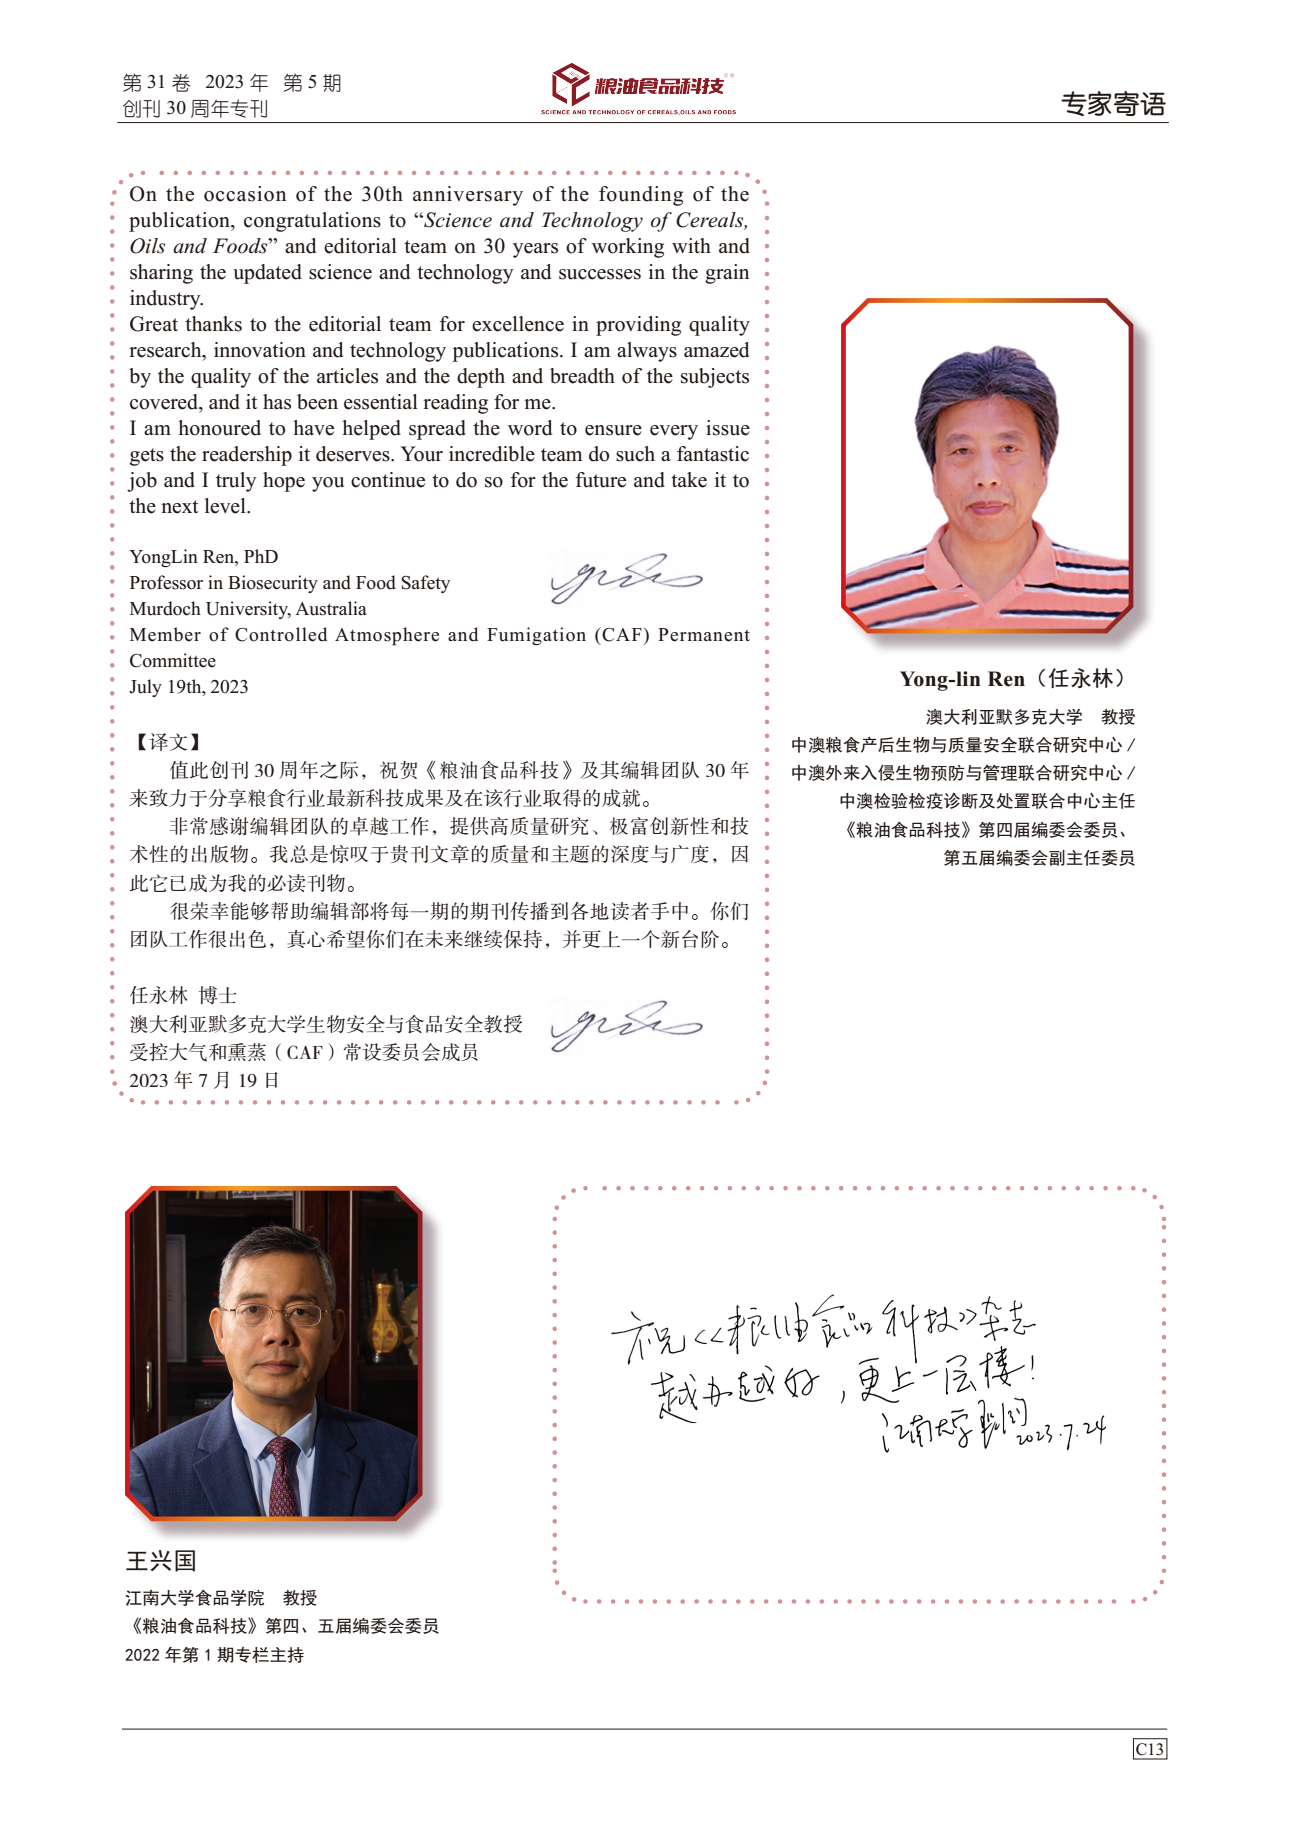 第 31 卷 2023 年 第 5 期
创刊 30 周年专刊
粮油食品科技
SCIENCE AND TECHNOLOGY OF CEREALS,OILS AND FOODS
专家寄语
On the occasion of the 30th anniversary of the founding of the
publication, congratulations to “Science and Technology of Cereals,
Oils and Foods” and editorial team on 30 years of working with and
sharing the updated science and technology and successes in the grain
industry.
Great thanks to the editorial team for excellence in providing quality
research, innovation and technology publications. I am always amazed
by the quality of the articles and the depth and breadth of the subjects
covered, and it has been essential reading for me.
I am honoured to have helped spread the word to ensure every issue
gets the readership it deserves. Your incredible team do such a fantastic
job and I truly hope you continue to do so for the future and take it to
the next level.
YongLin Ren, PhD
Professor in Biosecurity and Food Safety
Murdoch University, Australia
Member of Controlled Atmosphere and Fumigation (CAF) Permanent
Committee
July 19th, 2023
【译文】
值此创刊 30 周年之际，祝贺《粮油食品科技》及其编辑团队 30 年
来致力于分享粮食行业最新科技成果及在该行业取得的成就。
非常感谢编辑团队的卓越工作，提供高质量研究、极富创新性和技
术性的出版物。我总是惊叹于贵刊文章的质量和主题的深度与广度，因
此它已成为我的必读刊物。
很荣幸能够帮助编辑部将每一期的期刊传播到各地读者手中。你们
团队工作很出色，真心希望你们在未来继续保持，并更上一个新台阶。
任永林 博士
澳大利亚默多克大学生物安全与食品安全教授
受控大气和熏蒸（CAF）常设委员会成员
2023 年 7 月 19 日
Yong-lin Ren（任永林）
澳大利亚默多克大学 教授
中澳粮食产后生物与质量安全联合研究中心 /
中澳外来入侵生物预防与管理联合研究中心 /
中澳检验检疫诊断及处置联合中心主任
《粮油食品科技》第四届编委会委员、
第五届编委会副主任委员
王兴国
江南大学食品学院 教授
《粮油食品科技》第四、五届编委会委员
2022 年第 1 期专栏主持
祝<<粮油食品科技>>杂志
越办越好，更上一层楼！
江南大学 2023.7.24
C13